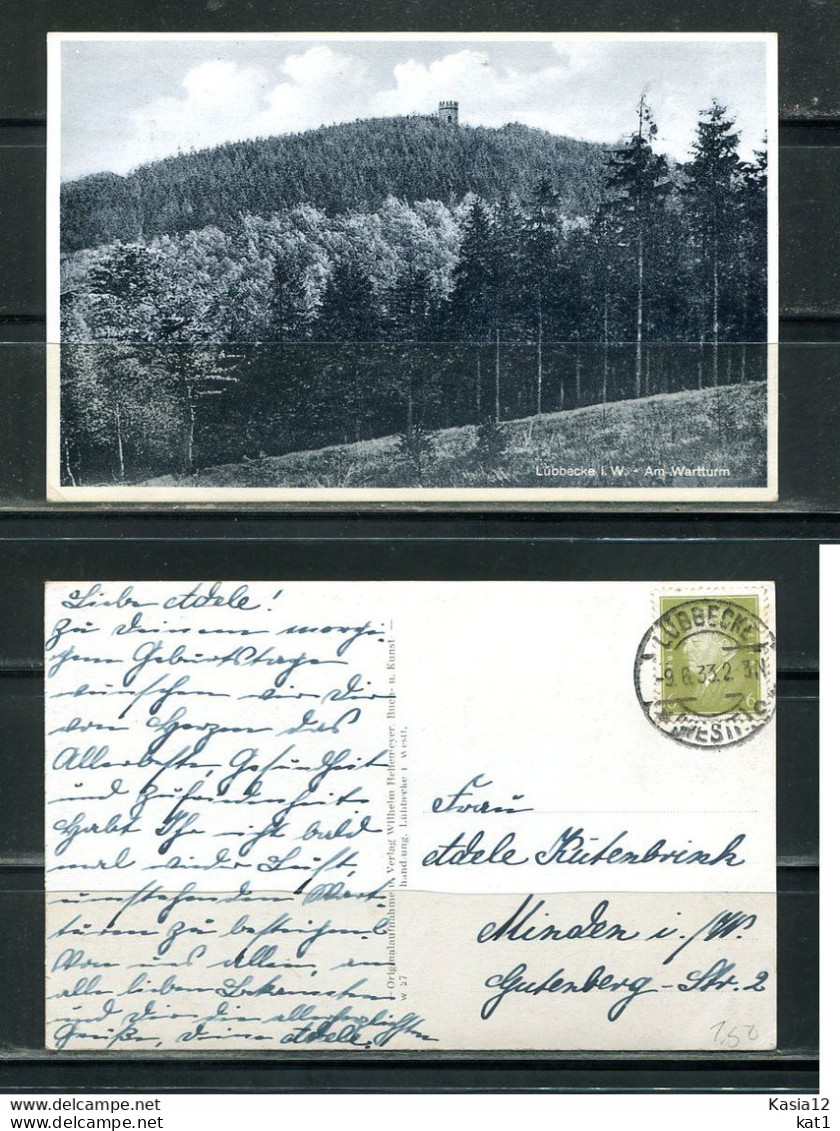 Lübbecke i. W. - Am Wartturm
Liebe Adele!
Zu Deinem morgi-
gem Geburtstage
wünschen wir Dir
von Herzen das
Allerbeste, Gesundheit
und Zufriedenheit.
Habt Ihr nicht bald
mal wieder Lust,
umstehenden Wart-
turm zu besteigen?
Von uns allen, an
alle lieben Bekannten
und Dir die allerherzlichsten
Grüße, Deine Adele.
Originalaufnahme u. Verlag Wilhelm Hellemeyer, Buch- u. Kunst-
handlung, Lübbecke i. Westf.
W 27
LÜBBECKE
-9.6.33.2
(WESTF.)
6
Frau
Adele Kütenbrink
Minden i./W.
Gutenberg-Str. 2
1,50
https://www.delcampe.net
Kasia12
http://www.delcampe.net
kat1